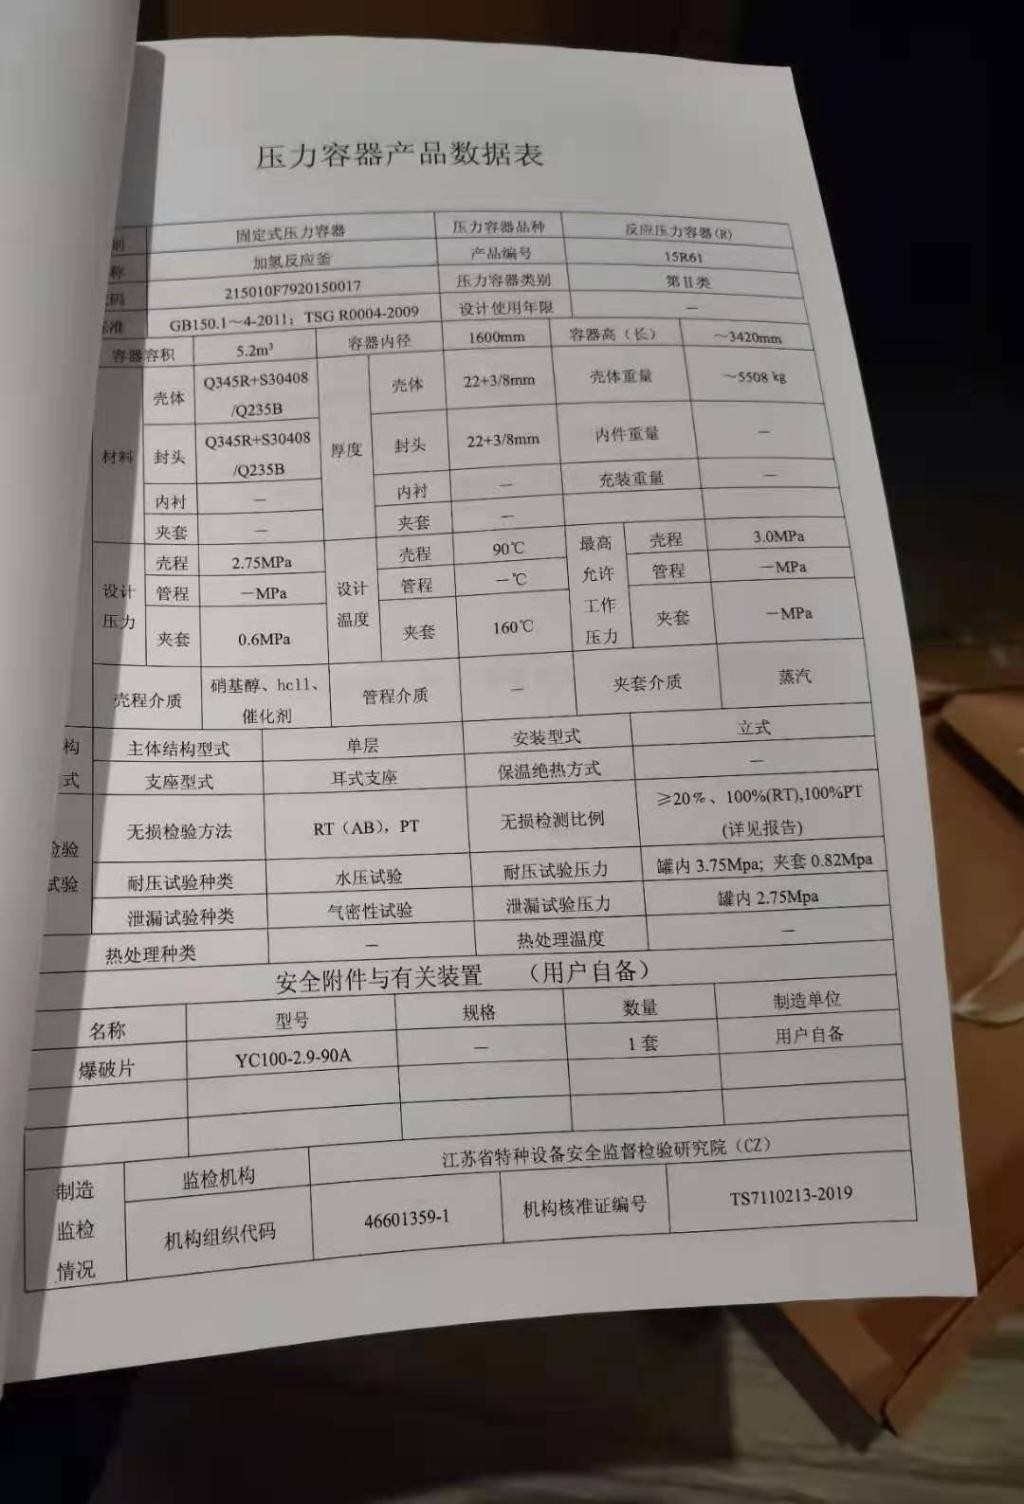 压力容器产品数据表
别 固定式压力容器 压力容器品种 反应压力容器(R)
称 加氢反应釜 产品编号 15R61
码 215010F7920150017 压力容器类别 第Ⅱ类
标准 GB150.1～4-2011; TSG R0004-2009 设计使用年限 —
容器容积 5.2m³ 容器内径 1600mm 容器高（长） ～3420mm
材料 壳体 Q345R+S30408/Q235B 厚度 壳体 22+3/8mm 壳体重量 ～5508 kg
封头 Q345R+S30408/Q235B 封头 22+3/8mm 内件重量 —
内衬 — 内衬 — 充装重量 —
夹套 — 夹套 —
设计压力 壳程 2.75MPa 设计温度 壳程 90℃ 最高允许工作压力 壳程 3.0MPa
管程 —MPa 管程 —℃ 管程 —MPa
夹套 0.6MPa 夹套 160℃ 夹套 —MPa
壳程介质 硝基醇、hcl1、催化剂 管程介质 — 夹套介质 蒸汽
构 主体结构型式 单层 安装型式 立式
式 支座型式 耳式支座 保温绝热方式 —
检验 无损检验方法 RT（AB），PT 无损检测比例 ≥20%、100%(RT),100%PT
(详见报告)
试验 耐压试验种类 水压试验 耐压试验压力 罐内 3.75Mpa; 夹套 0.82Mpa
泄漏试验种类 气密性试验 泄漏试验压力 罐内 2.75Mpa
热处理种类 — 热处理温度 —
安全附件与有关装置 （用户自备）
名称 型号 规格 数量 制造单位
爆破片 YC100-2.9-90A — 1 套 用户自备
制造监检情况 监检机构 江苏省特种设备安全监督检验研究院（CZ）
机构组织代码 46601359-1 机构核准证编号 TS7110213-2019